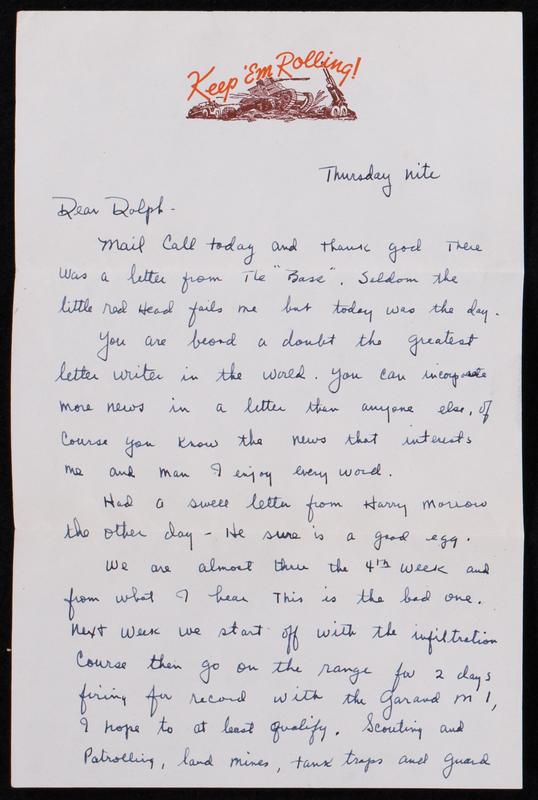 Keep 'Em Rolling!
Thursday nite
Dear Dolph-
Mail Call today and thank god There
was a letter from The "Base". Seldom the
little red Head fails me but today was the day.
You are beond a doubt the greatest
letter writer in the world. You can incorporate
more news in a letter than anyone else, of
Course you know the news that interests
me and man I enjoy every word.
Had a swell letter from Harry Morrow
the other day - He sure is a good egg.
We are almost thru the 4th Week and
from what I hear This is the bad one.
Next Week we start off with the infiltration
Course then go on the range for 2 days
firing for record with the Garand M 1,
I hope to at least qualify. Scouting and
Patrolling, land mines, tank traps and guard